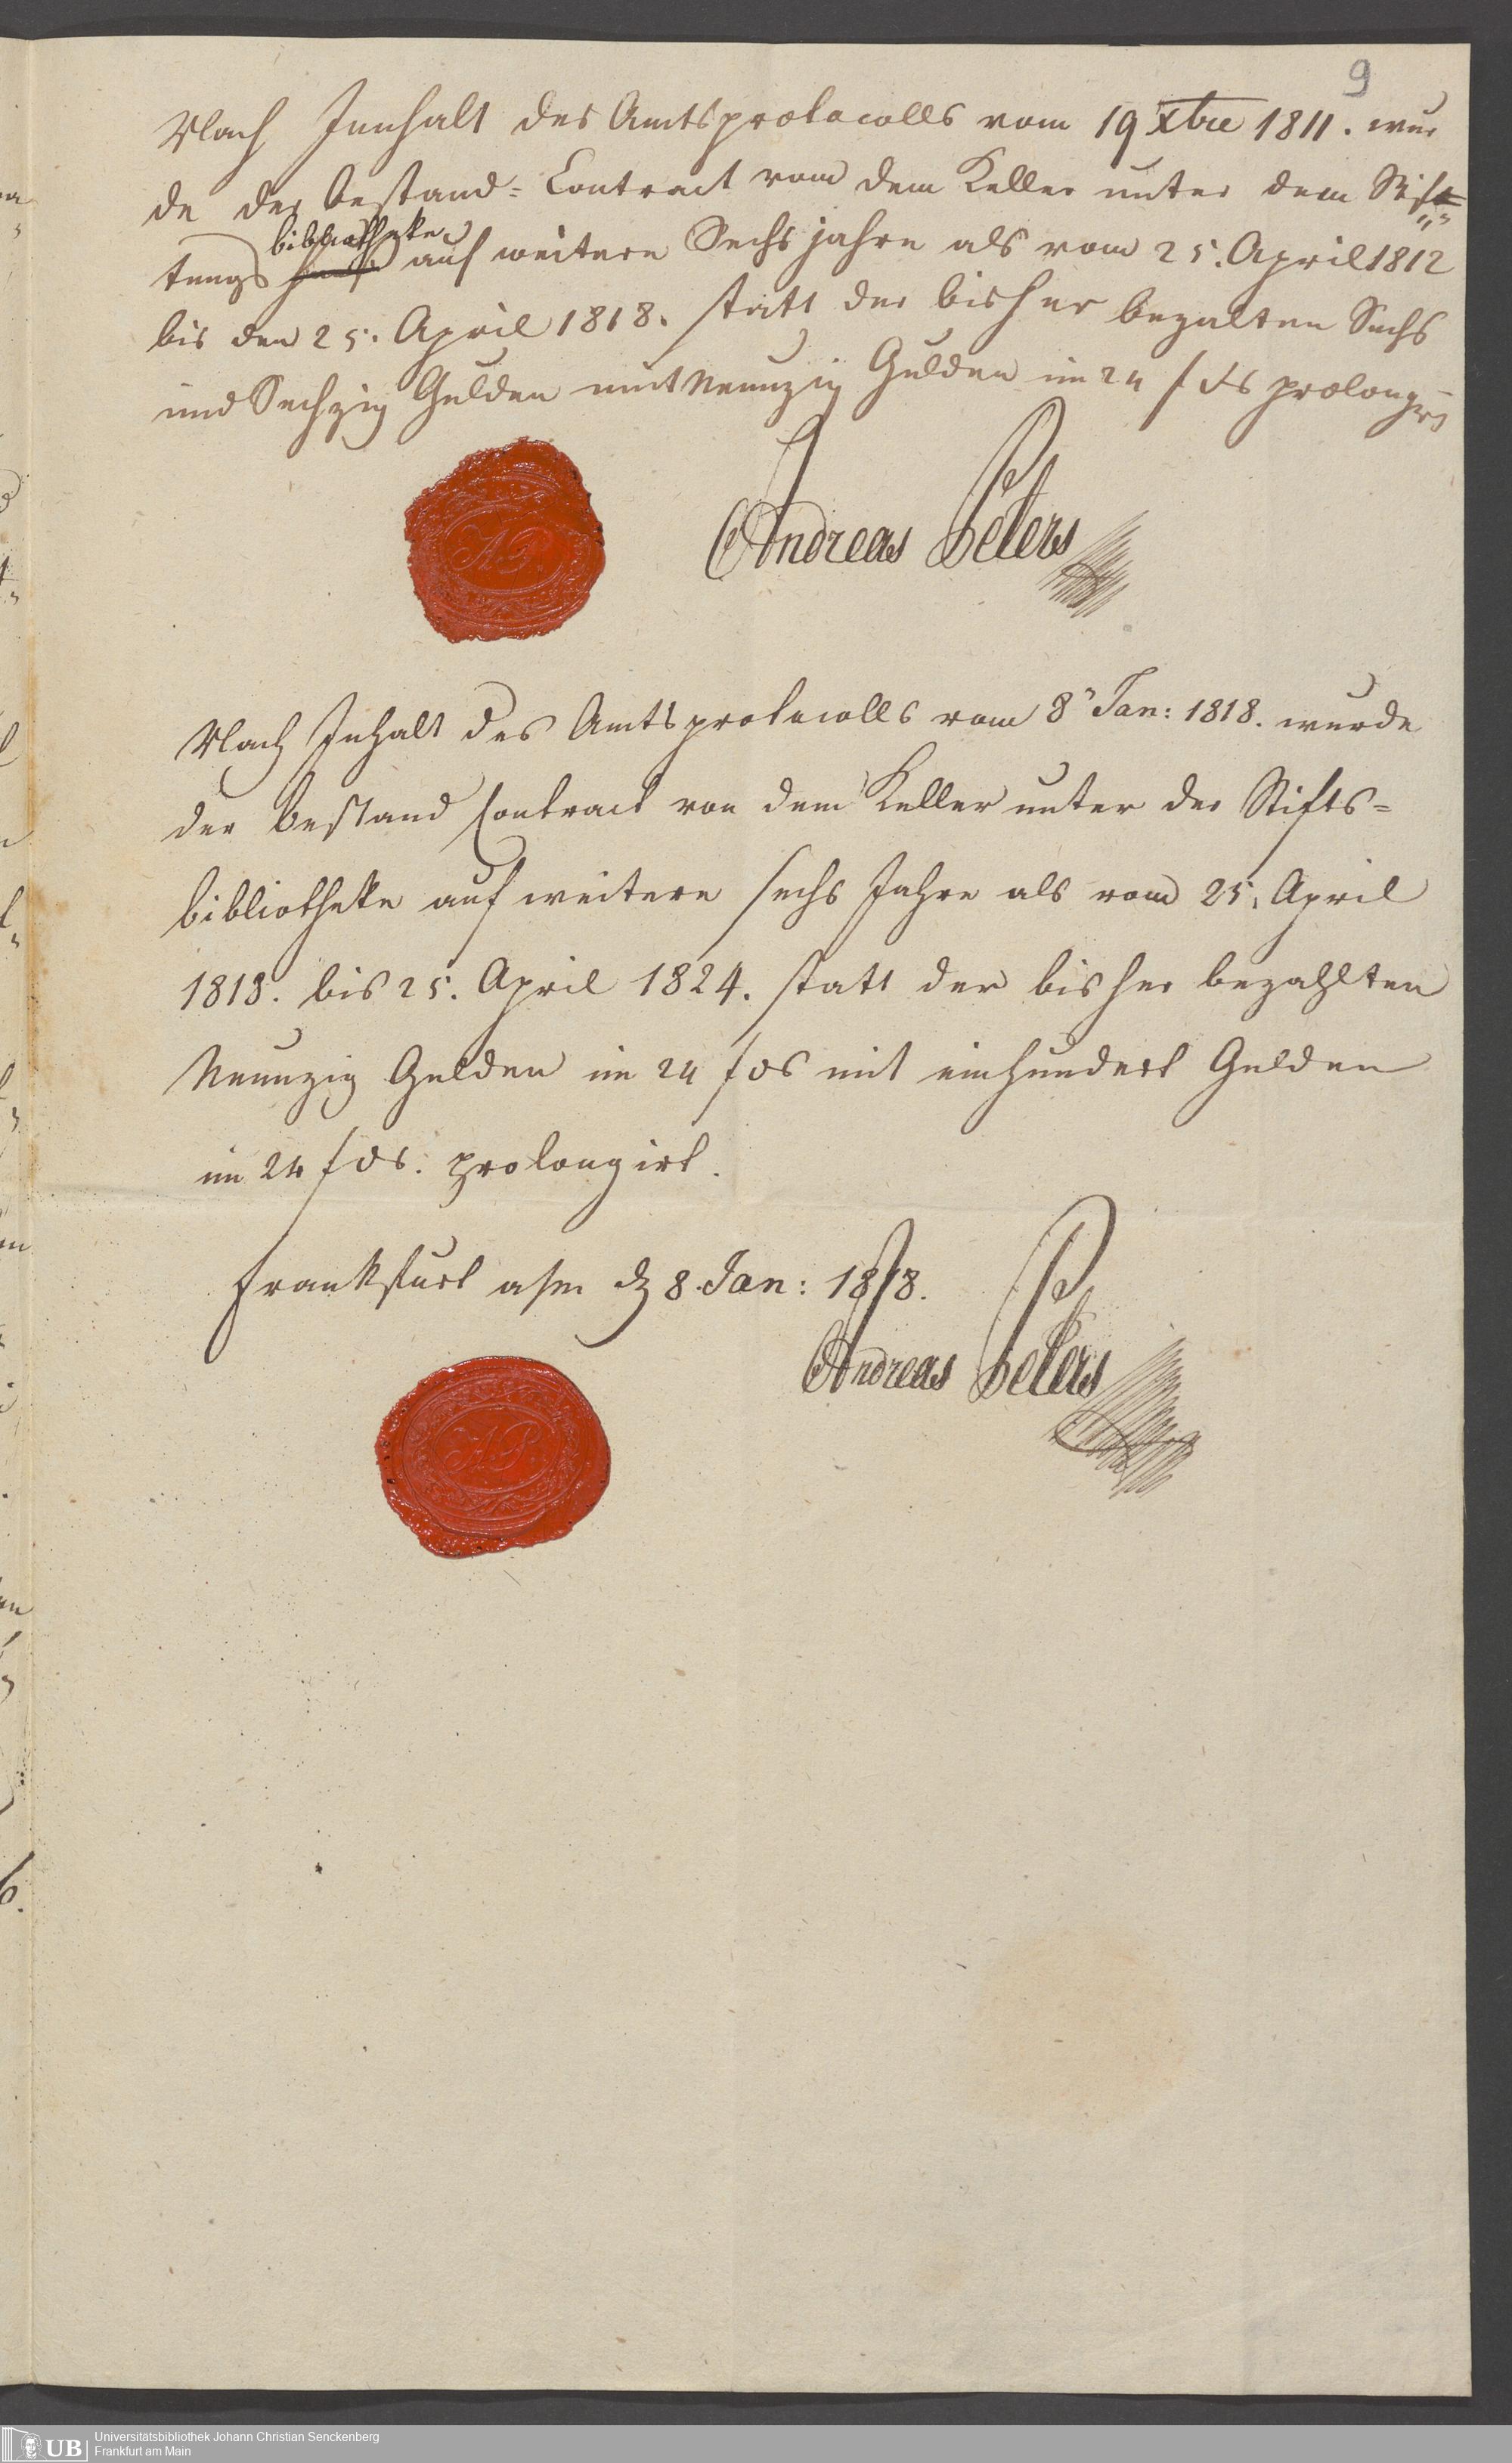 9
Nach Innhalt des Amtsprotocolls vom 19 Xbre 1811. wur
de der Bestand=Contract von dem Keller unter dem Stif=
tungs bibliotheke auf weitere Sechs jahre als vom 25. April 1812
bis den 25. April 1818. statt der bisher bezalten Sechs
und Sechzig Gulden mit Neunzig Gulden im 24 f ds prolongirt
A.P.
Andreas Peters
Nach Inhalt des Amtsprotocolls vom 8 Jan: 1818. wurde
der Bestand Contract von dem Keller unter der Stifts=
bibliotheke auf weitere sechs Jahre als vom 25. April
1818. bis 25. April 1824. statt der bisher bezahlten
Neunzig Gulden im 24 f ds mit einhundert Gulden
im 24 f ds. prolongirt.
Frankfurt a/m d 8. Jan: 1818.
Andreas Peters
A.P.
UB
Universitätsbibliothek Johann Christian Senckenberg
Frankfurt am Main